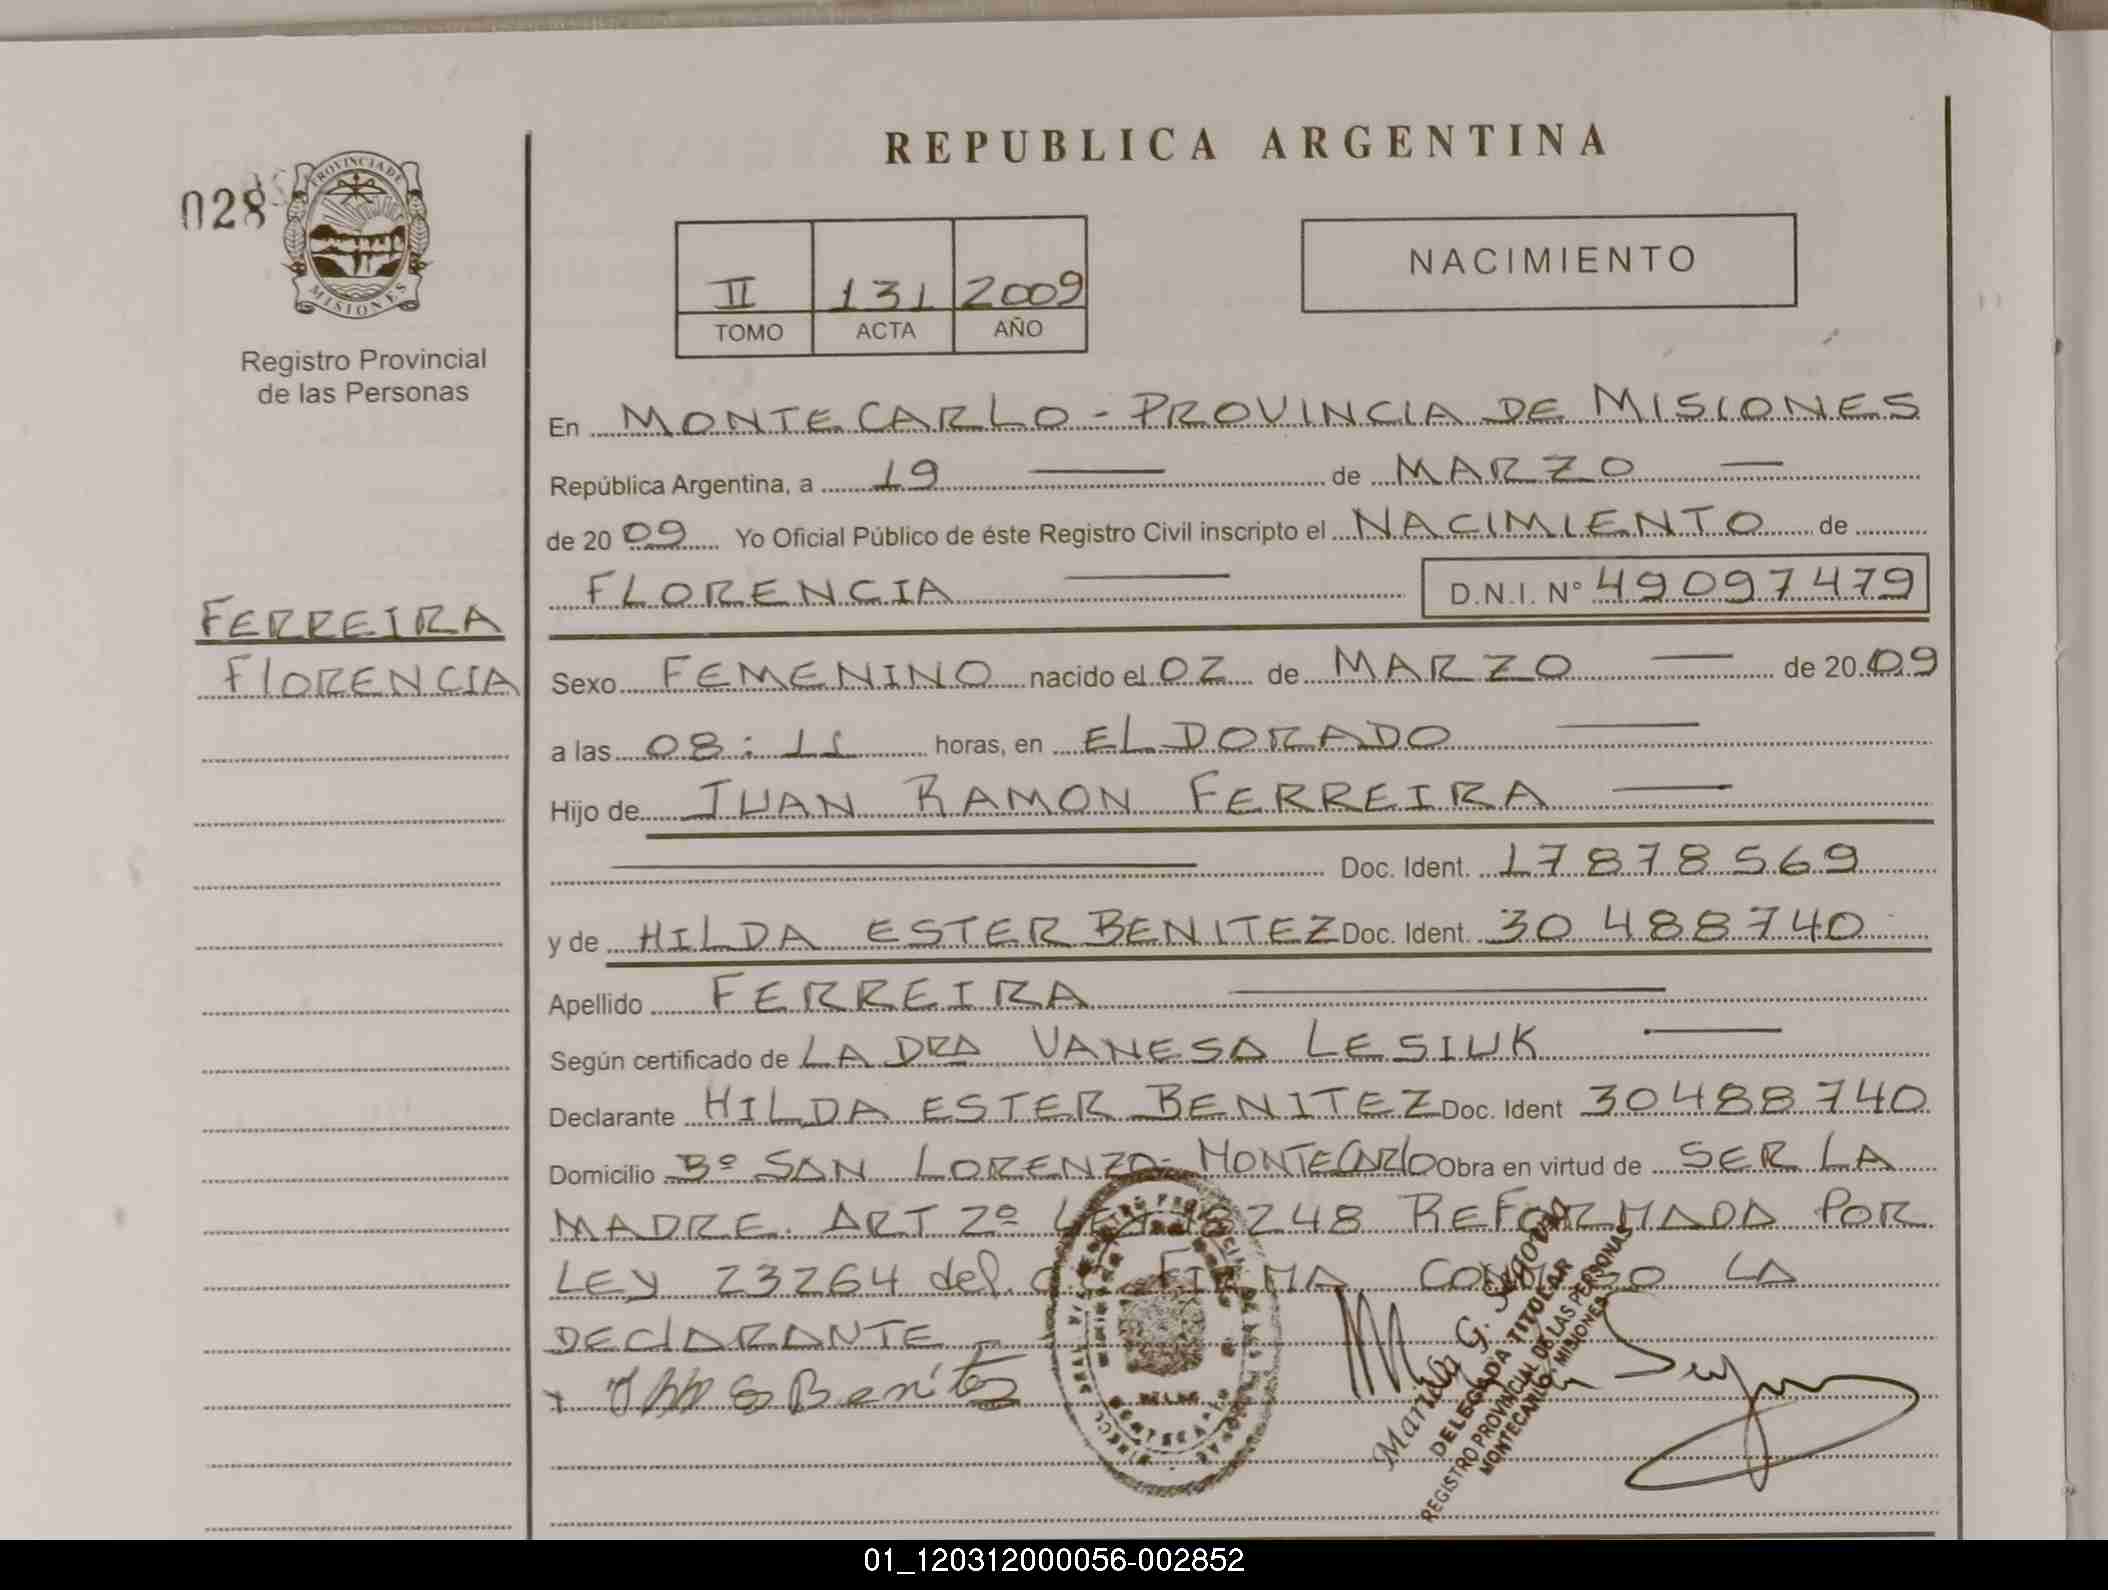 REPUBLICA ARGENTINA
028
PROVINCIA DE
MISIONES
Registro Provincial
de las Personas
II 131 2009
TOMO ACTA AÑO
NACIMIENTO
En MONTECARLO - PROVINCIA DE MISIONES
República Argentina, a 19 de MARZO
de 2009 Yo Oficial Público de éste Registro Civil inscripto el NACIMIENTO de
FLORENCIA D.N.I. Nº 49097479
FERREIRA
FLORENCIA
Sexo FEMENINO nacido el 02 de MARZO de 2009
a las 08:11 horas, en ELDORADO
Hijo de JUAN RAMON FERREIRA
Doc. Ident. 17878569
y de HILDA ESTER BENITEZ Doc. Ident. 30488740
Apellido FERREIRA
Según certificado de LA DRA VANESA LESIUK
Declarante HILDA ESTER BENITEZ Doc. Ident 30488740
Domicilio Bº SAN LORENZO - MONTECARLO Obra en virtud de SER LA
MADRE. ART 2º LEY 18248 REFORMADA POR
LEY 23264 del FIRMA CONMIGO LA
DECLARANTE
Benitez
Mariela G. Segovia
DELEGADA TITULAR
REGISTRO PROVINCIAL DE LAS PERSONAS
MONTECARLO - MISIONES
01_120312000056-002852